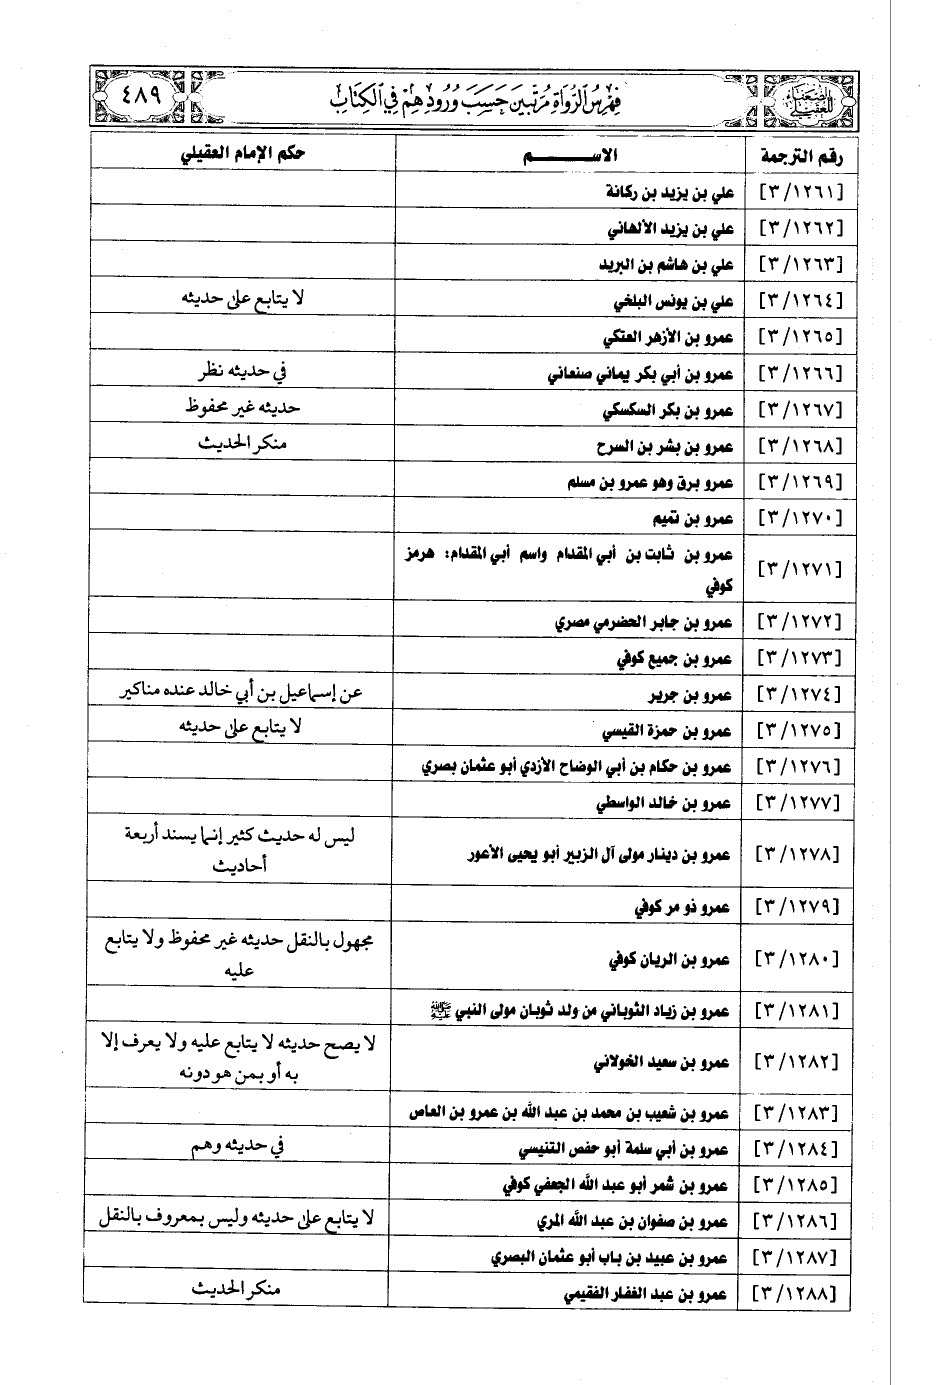 الضعفاء للعقيلي فهرس الرواة مرتبين حسب ورودهم في الكتاب ٤٨٩
رقم الترجمة الاســــــــم حكم الإمام العقيلي
[٣/١٢٦١] علي بن يزيد بن ركانة
[٣/١٢٦٢] علي بن يزيد الألهاني
[٣/١٢٦٣] علي بن هاشم بن البريد
[٣/١٢٦٤] علي بن يونس البلخي لا يتابع على حديثه
[٣/١٢٦٥] عمرو بن الأزهر العتكي
[٣/١٢٦٦] عمرو بن أبي بكر يماني صنعاني في حديثه نظر
[٣/١٢٦٧] عمرو بن بكر السكسكي حديثه غير محفوظ
[٣/١٢٦٨] عمرو بن بشر بن السرح منكر الحديث
[٣/١٢٦٩] عمرو برق وهو عمرو بن مسلم
[٣/١٢٧٠] عمرو بن تميم
[٣/١٢٧١] عمرو بن ثابت بن أبي المقدام واسم أبي المقدام: هرمز
كوفي
[٣/١٢٧٢] عمرو بن جابر الحضرمي مصري
[٣/١٢٧٣] عمرو بن جميع كوفي
[٣/١٢٧٤] عمرو بن جرير عن إسماعيل بن أبي خالد عنده مناكير
[٣/١٢٧٥] عمرو بن حمزة القيسي لا يتابع على حديثه
[٣/١٢٧٦] عمرو بن حكام بن أبي الوضاح الأزدي أبو عثمان بصري
[٣/١٢٧٧] عمرو بن خالد الواسطي
[٣/١٢٧٨] عمرو بن دينار مولى آل الزبير أبو يحيى الأعور ليس له حديث كثير إنما يسند أربعة
أحاديث
[٣/١٢٧٩] عمرو ذو مر كوفي
[٣/١٢٨٠] عمرو بن الريان كوفي مجهول بالنقل حديثه غير محفوظ ولا يتابع
عليه
[٣/١٢٨١] عمرو بن زياد الثوباني من ولد ثوبان مولى النبي ﷺ
[٣/١٢٨٢] عمرو بن سعيد الخولاني لا يصح حديثه لا يتابع عليه ولا يعرف إلا
به أو بمن هو دونه
[٣/١٢٨٣] عمرو بن شعيب بن محمد بن عبد الله بن عمرو بن العاص
[٣/١٢٨٤] عمرو بن أبي سلمة أبو حفص التنيسي في حديثه وهم
[٣/١٢٨٥] عمرو بن شمر أبو عبد الله الجعفي كوفي
[٣/١٢٨٦] عمرو بن صفوان بن عبد الله المري لا يتابع على حديثه وليس بمعروف بالنقل
[٣/١٢٨٧] عمرو بن عبيد بن باب أبو عثمان البصري
[٣/١٢٨٨] عمرو بن عبد الغفار الفقيمي منكر الحديث